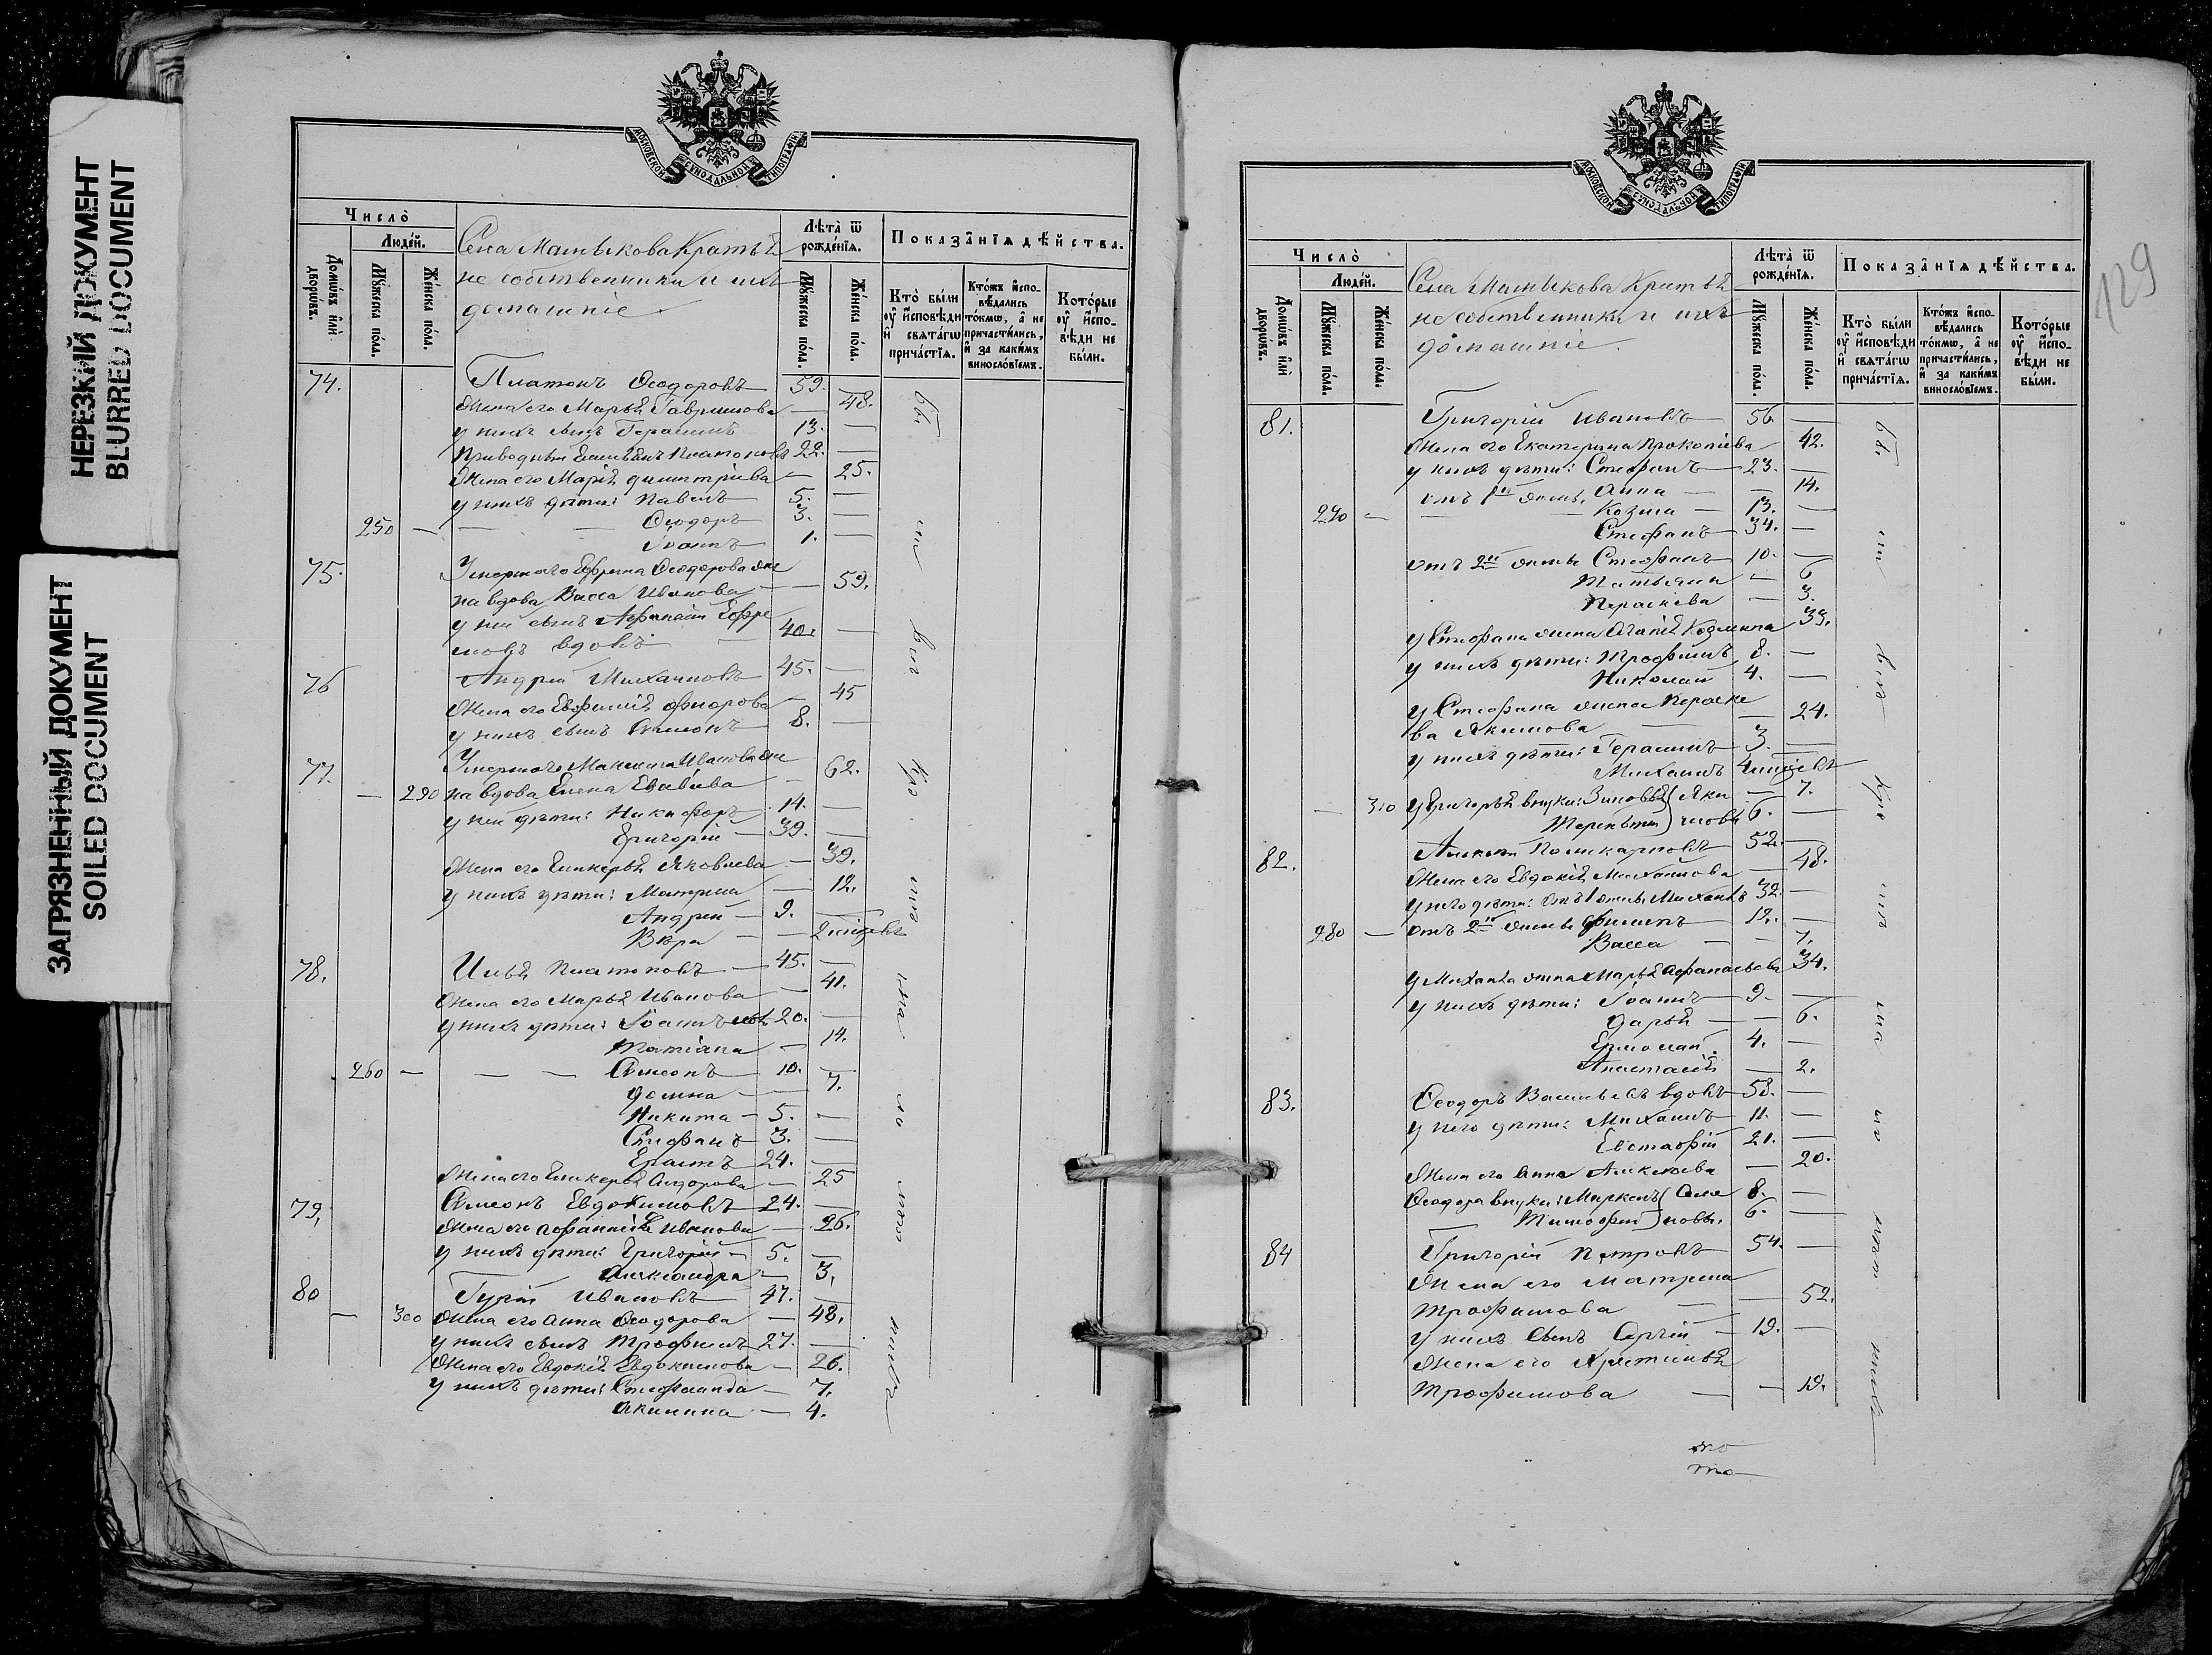 НЕРЕЗКИЙ ДОКУМЕНТ
BLURRED DOCUMENT
ЗАГРЯЗНЕННЫЙ ДОКУМЕНТ
SOILED DOCUMENT
МОСКОВСКОЙ СѴНОДАЛЬНОЙ ТИПОГРАФІИ
Число̀
Людéй.
Домѡ́въ и҆лѝ дворѡ́въ.
Мꙋ́жеска по́ла.
Же́нска по́ла.
Села Матыкова Крестья
не собственники и ихъ
домашніе
Лѣта̀ ѿ рожде́нїѧ.
Мꙋ́жеска по́ла.
Же́нска по́ла.
Показа̑нїѧ дѣ́йства.
Кто̀ бы́ли ᲂу҆ и҆́сповѣди и҆ свѧта́гѡ прича́стїѧ.
Кто́жъ и҆спо-вѣ́дались то́кмѡ, а҆ не причасти́лись, и҆ за каки́мъ винослові́емъ.
Кото́рые ᲂу҆ и҆́спо-вѣди не бы́ли.
74. Платонъ Ѳеодоровъ 59.
Жена его Марья Гаврилова — 48.
у нихъ сынъ Герасимъ 13. —
Приводный Емельянъ Платоновъ 22. —
Жена его Марія Димитріева — 25.
у нихъ дѣти: Павелъ 5. —
250 — Ѳеодоръ 3. —
Іоаннъ 1. —
75. Умершаго Ефрема Ѳеодорова же
на вдова Васса Иванова — 59.
у ней сынъ Афанасій Ефре
мовъ вдовъ 40. —
76 Андрей Михаиловъ 45. —
Жена его Евфимія Ѳедорова — 45
у нихъ сынъ Симеонъ 8. —
77. Умершаго Максима Иванова же
— 290 на вдова Елена — 62.
у ней дѣти: Никифоръ 14. —
Григорій 39. —
Жена его Гликерья Яковлева — 39.
у нихъ дѣти: Матрена — 12.
Андрей — 9. —
Вѣра — — 2 мѣсяцевъ
78. Илья Платоновъ — 45. —
Жена его Марья Иванова — 41.
у нихъ дѣти: Іоаннъ 20. —
Татіана — 14.
260 — — — Симеонъ 10. —
Домна — 7.
Никита — 5. —
Стефанъ 3. —
Ерастъ 24. —
Жена его Гликерья Сидорова — 25
79, Симеонъ Евдокимовъ 24. —
Жена его Иванова — 26.
у нихъ дѣти: Григорій — 5. —
Александра — 3,
80 Гурій Ивановъ 47. —
— 300 Жена его Анна Ѳеодорова — 48,
у нихъ сынъ Трофимъ 27. —
Жена его Евдокія Евдокимова — 26.
у нихъ дѣти: Стефанида — 7.
Акилина — 4.
МОСКОВСКОЙ СѴНОДАЛЬНОЙ ТИПОГРАФІИ
129
Число̀
Людéй.
Домѡ́въ и҆лѝ дворѡ́въ.
Мꙋ́жеска по́ла.
Же́нска по́ла.
Села Матыкова Крестья
не собственники и ихъ
домашніе.
Лѣта̀ ѿ рожде́нїѧ.
Мꙋ́жеска по́ла.
Же́нска по́ла.
Показа̑нїѧ дѣ́йства.
Кто̀ бы́ли ᲂу҆ и҆́сповѣди и҆ свѧта́гѡ прича́стїѧ.
Кто́жъ и҆спо-вѣ́дались то́кмѡ, а҆ не причасти́лись, и҆ за каки́мъ винослові́емъ.
Кото́рые ᲂу҆ и҆́спо-вѣди не бы́ли.
81. Григорій Ивановъ 56 —
Жена его Екатерина Прокопіева 42.
у нихъ дѣти: Стефанъ — 23. —
отъ 1й жены. Анна — — 14.
290 — Козма — 13. —
Стефанъ 34. —
отъ 2й жены Стефанъ 10. —
Татьяна — 6
Параскева — 3.
у Стефана жена Агапія Козмина 33.
у нихъ дѣти: Трофимъ 8. —
Николай 4. —
у Стефана жена Параске
ва Якимова — 24.
у нихъ дѣти: Герасимъ 3. —
Михаилъ 4 мѣсяцевъ
— 310 у Григорья внуки: Зиновья Яки — 7.
Терентій мовы 6. —
82. Алексѣй Поликарповъ 52. —
Жена его Евдокія Михаилова — 48.
у него дѣти: отъ 1 жены Михаилъ 32. —
280 — отъ 2й жены Филиппъ 12. —
Васса — — 7.
у Михаила жена Марья Афанасьева 34.
у нихъ дѣти: Іоаннъ 9. —
Дарья — — 6.
Ермолай 4. —
Анастасія — 2.
83. Ѳеодоръ Васильевъ вдовъ 58. —
у него дѣти: Михаилъ 11. —
Евстафій 21. —
Жена его Анна Алексѣева — 20.
Ѳеодора внуки: Маркелъ Симе 8. —
Тимофей новы. 6. —
84 Григорій Петровъ 54. —
Жена его Матрена
Трофимова — — 52.
у нихъ сынъ Сергій — 19. —
Жена его Христинья
Трофимова — — 19.
то